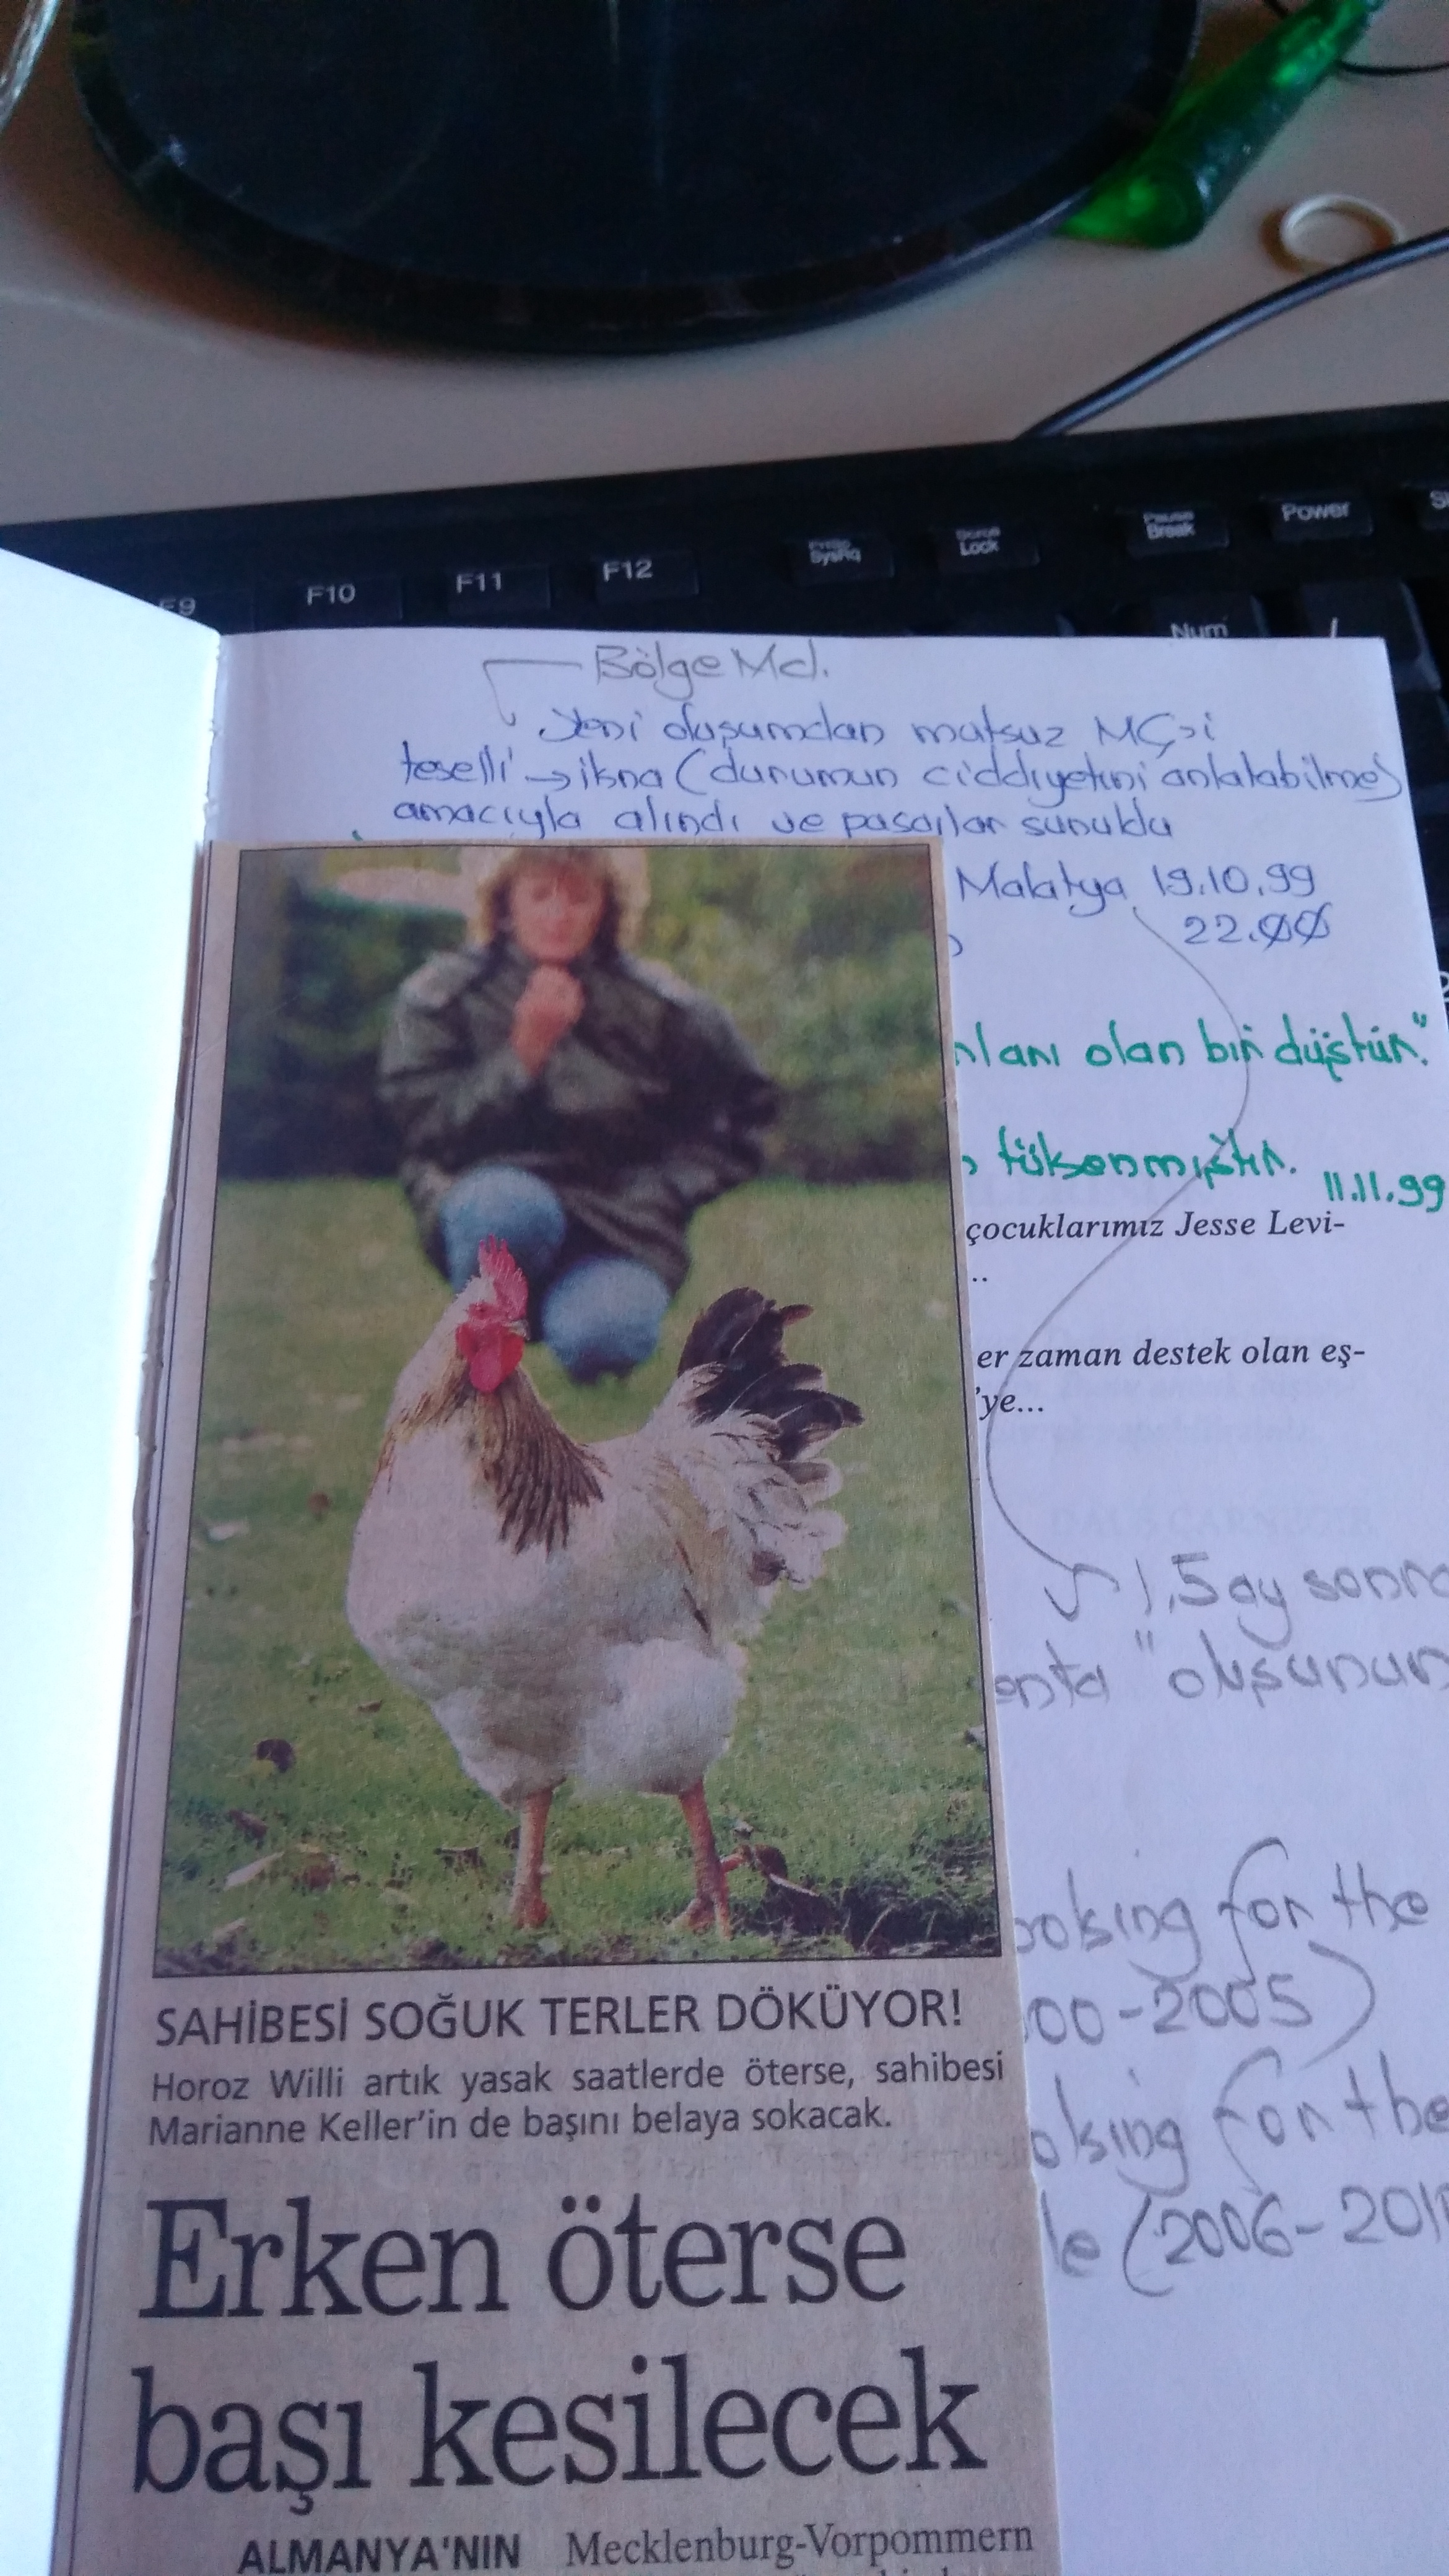 F9 F10 F11 F12 SysRq Scroll Lock Pause Break Power
Num /
Bölge Md.
Yeni oluşumdan mutsuz MÇ'i
teselli → ikna (durumun ciddiyetini anlatabilme)
amacıyla alındı ve pasajlar sunuldu
Malatya 19.10.99
22.00
nlanı olan bir düştür."
tükenmiştir.
11.11.99
çocuklarımız Jesse Levi-
..
er zaman destek olan eş-
'ye...
DALE CARNEGIE
1,5 ay sonra
enta " oluşunun
ooking for the
00-2005)
oking for the
le (2006-201
SAHİBESİ SOĞUK TERLER DÖKÜYOR!
Horoz Willi artık yasak saatlerde öterse, sahibesi
Marianne Keller'in de başını belaya sokacak.
Erken öterse
başı kesilecek
ALMANYA'NIN Mecklenburg-Vorpommern